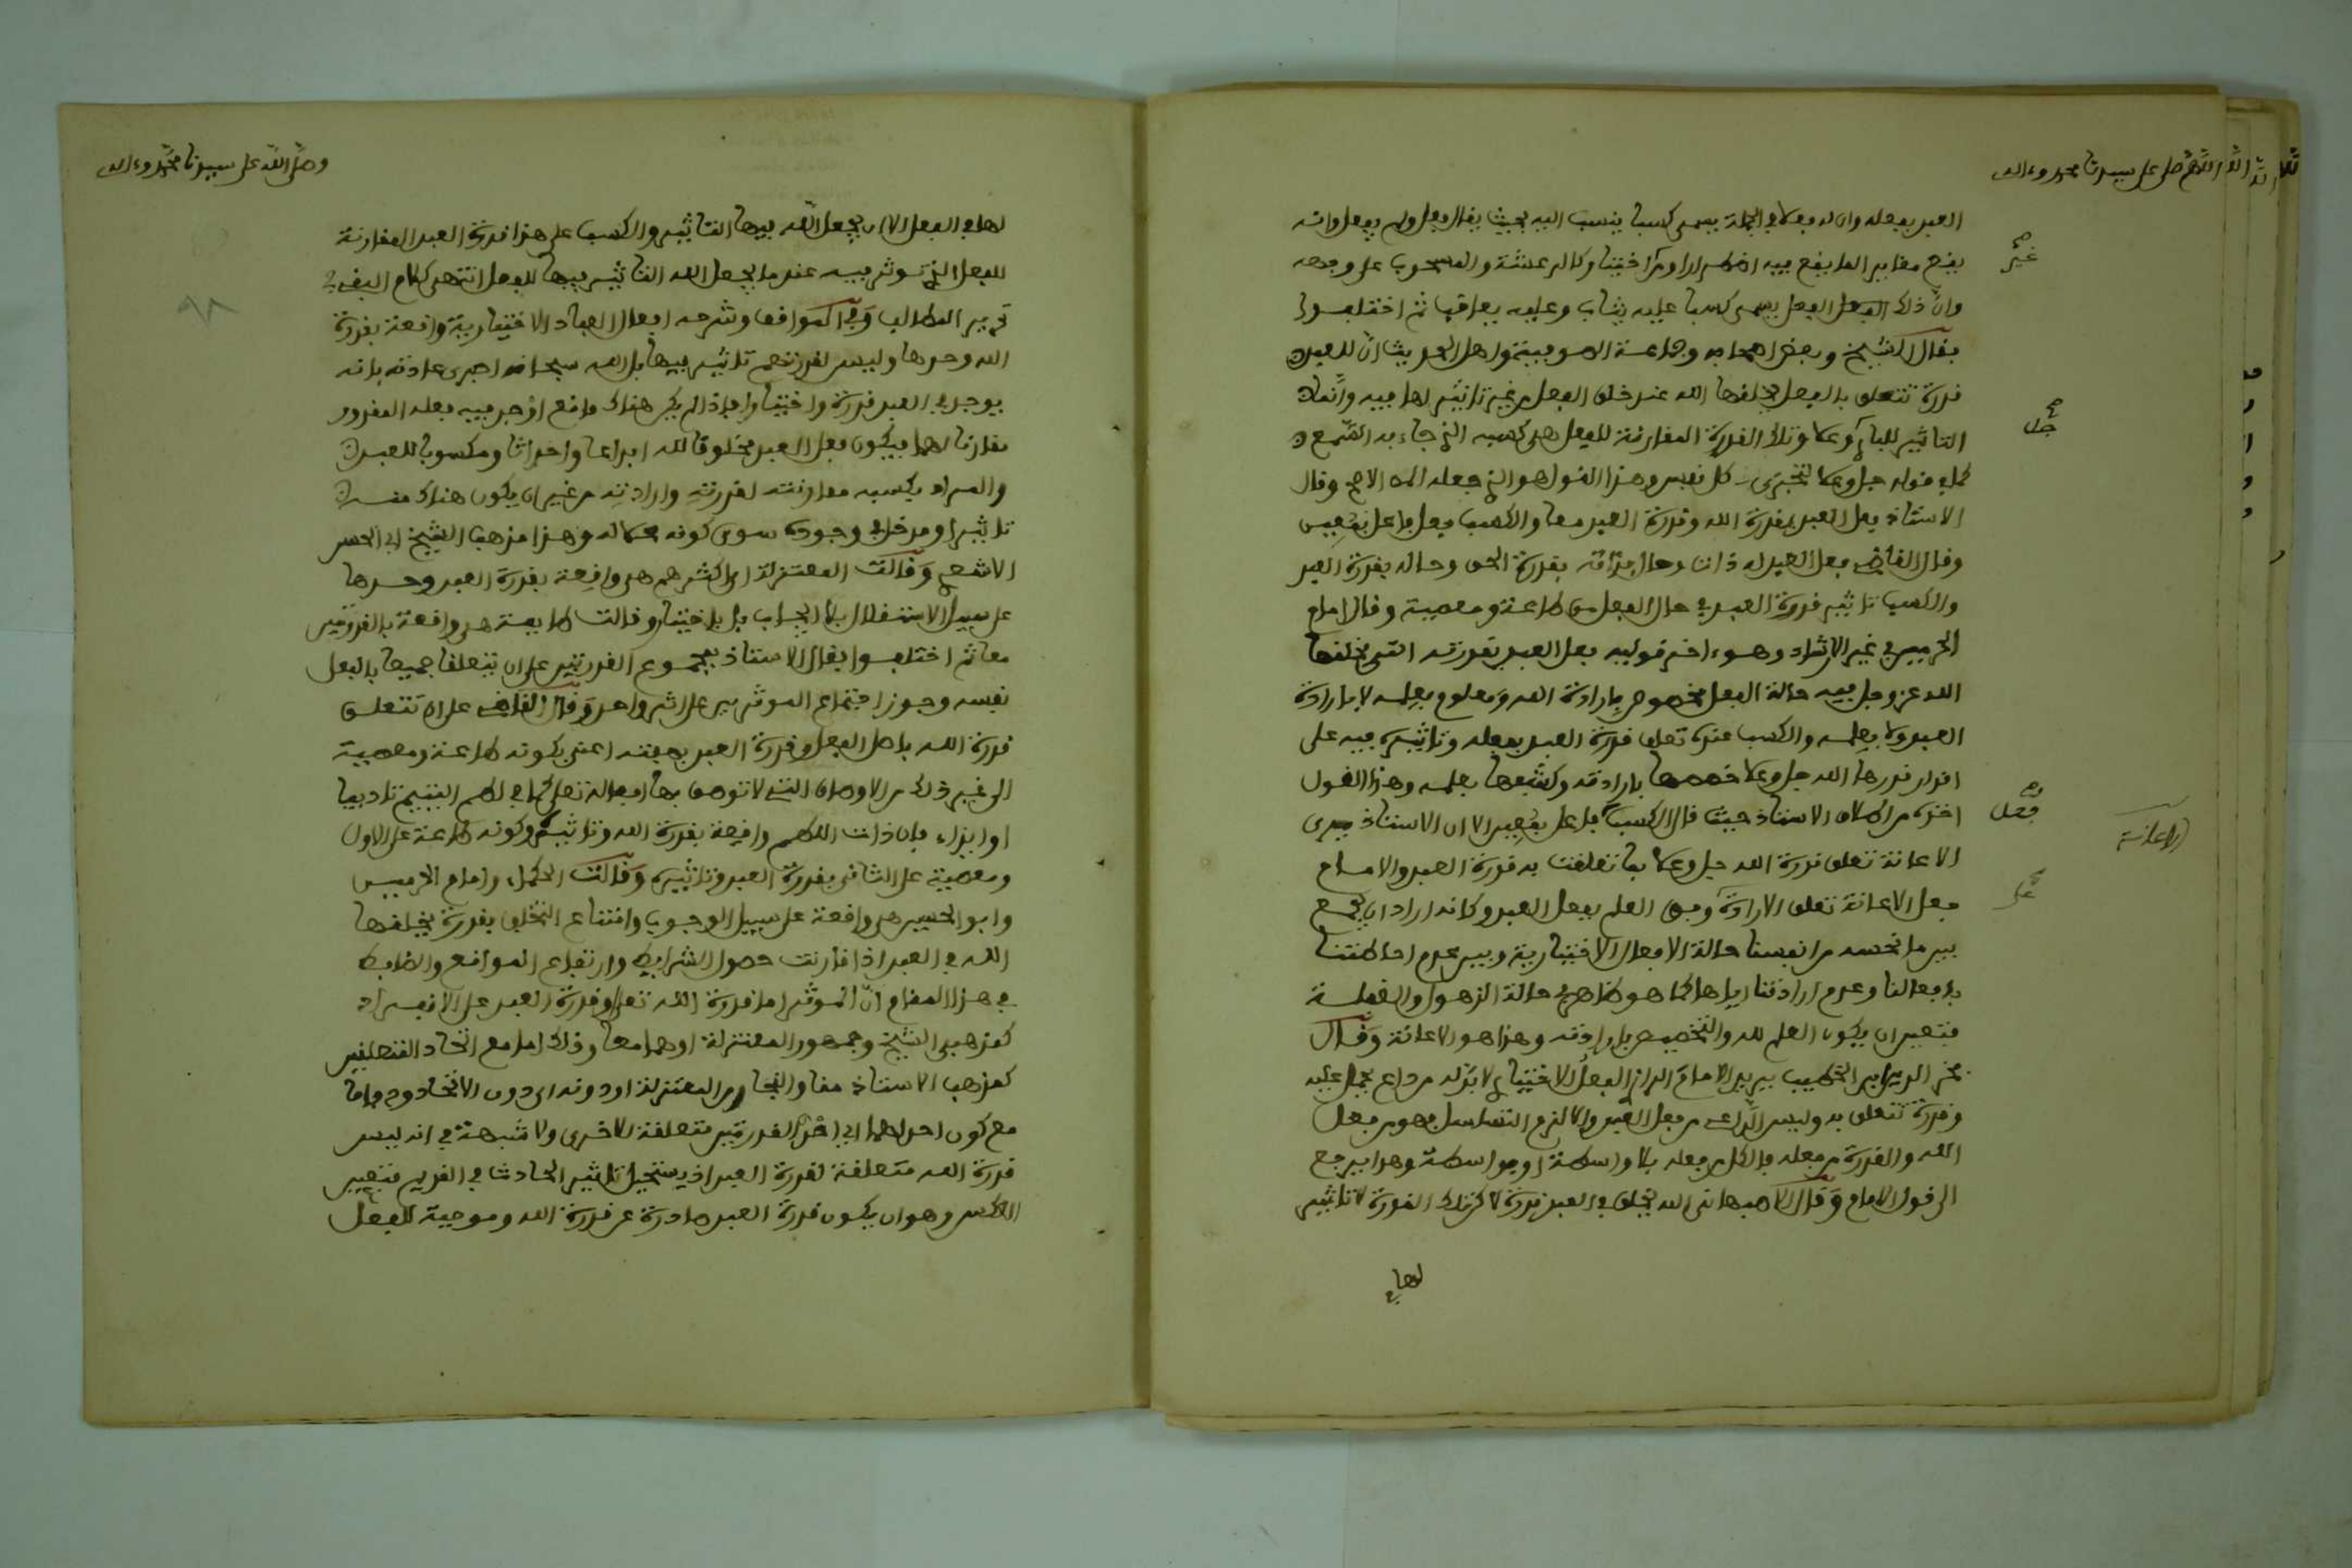 اللهم صل على سيدنا محمد وءاله
العبد بفعله وان له فعلا في الجملة يسمى كسبا ينسب اليه بحيث يقال فعل ولم يفعل وانه
يقع مغاير لما يقع فيه اضطرارا من اختيار كالرعشة والمسحوب على وجهه
وان ذلك الفعل يسمى كسبا عليه يثاب وعليه يعاقب ثم اختلفوا
فقال الشيخ وبعض اصحابه وجماعة الصوفية واهل الحديث ان للعبد
قدرة تتعلق بالفعل يخلقها الله عند خلق الفعل من غير تاثير لها فيه وانما
التاثير للباري وعلا وتلك القدرة المقارنة للفعل هي كسبه الذي جاء به السمع
كما في قوله جل وعلا لتجزى كل نفس وهذا القول هو الذي جعله الاصح وقال
الاستاذ فعل العبد بقدرة الله وقدرة العبد معا والكسب فعل فاعل بمعين
وقال القاضي فعل العبد له ذات وحال فذاته بقدرة الحق وحاله بقدرة العبد
والكسب تاثير قدرة العبد في حال الفعل من طاعة ومعصية وقال امام
الحرمين في غير الارشاد وهو ءاخر قوليه فعل العبد بقدرته التي يخلقها
الله عز وجل فيه حالة الفعل مخصوص بارادة الله ومعلوم بعلمه لا بارادة
العبد ولا بعلمه والكسب عنده تعلق قدرة العبد بفعله وتاثيره فيه على
اقدار قدرها الله جل وعلا خصصها بارادته وكشفها بعلمه وهذا القول
اخذه من كلام الاستاذ حيث قال الكسب فاعل بمعين الا ان الاستاذ يرى
الاعانة تعلق قدرة الله جل وعلا بما تعلقت به قدرة العبد والامام
جعل الاعانة تعلق الارادة وفق العلم بفعل العبد وكانه اراد ان يجمع
بين ما نحسه من انفسنا حالة الافعال الاختيارية وبين عدم احاطتنا
بافعالنا وعدم ارادتنا اياها كما هو ظاهر في حالة الذهول والغفلة
فتعين ان يكون العلم لله والتخصيص بارادته وهذا هو الاعانة وقال
فخر الدين ابن الخطيب يريد الامام الرازي الفعل الاختياري لا بد له من داع يحمل عليه
وقدرة تتعلق به وليس الداعي من فعل العبد والا لزم التسلسل فهو من فعل
الله والقدرة من فعله فالكل من فعله بلا واسطة او بواسطة وهذا يرجع
الى قول الامام وقال الاصبهاني الله يخلق في العبد قدرة لكن تلك القدرة لا تاثير
لها في
غير
صح
جل
فعل
الاعانة
على
وصلى الله على سيدنا محمد وءاله
٩٨
لها في الفعل الا ان يجعل الله فيها التاثير والكسب على هذا قدرة العبد المقارنة
للفعل التي تؤثر فيه عندما يجعل الله التاثير فيها للفعل انتهى كلام اليفرني
تحرير المطالب وفي المواقف وشرحه افعال العباد الاختيارية واقعة بقدرة
الله وحدها وليس لقدرتهم تاثير فيها بل الله سبحانه اجرى عادته بانه
يوجد في العبد قدرة واختيارا فاذا لم يكن هناك مانع اوجد فيه فعله المقدور
مقارنا لهما فيكون فعل العبد مخلوقا لله ابداعا واحداثا ومكسوبا للعبد
والمراد بكسبه مقارنته لقدرته وارادته من غير ان يكون هناك منه
تاثير او مدخل في وجوده سوى كونه محلا له وهذا مذهب الشيخ ابي الحسن
الاشعري وقالت المعتزلة اي اكثرهم هي واقعة بقدرة العبد وحدها
على سبيل الاستقلال بلا ايجاب بل باختيار وقالت طايفة هي واقعة بالقدرتين
معا ثم اختلفوا فقال الاستاذ بمجموع القدرتين على ان يتعلقا جميعا بالفعل
نفسه وجوز اجتماع المؤثرين على اثر واحد وقال القاضي على ان تتعلق
قدرة الله باصل الفعل وقدرة العبد بصفته اعني بكونه طاعة ومعصية
الى غير ذلك من الاوصاف التي لا توصف بها افعاله تعالى كما في لطم اليتيم تاديبا
او ايذاء فان ذات اللطم واقعة بقدرة الله وتاثيره وكونه طاعة على الاول
ومعصية على الثاني بقدرة العبد وتاثيره وقالت الحكماء وامام الحرمين
وابو الحسين هي واقعة على سبيل الوجوب وامتناع التخلف بقدرة يخلقها
الله في العبد اذا قارنت حصول الشرايط وارتفاع الموانع والضابط
في هذا المقام ان المؤثر اما قدرة الله تعالى او قدرة العبد على الانفراد
كمذهبي الشيخ وجمهور المعتزلة او هما معا وذلك اما مع اتحاد المتعلقين
كمذهب الاستاذ منا والنجار من المعتزلة او دونه اي دون الاتحاد واما
مع كون احداهما اي احدى القدرتين متعلقة للاخرى ولا شبهة في انه ليس
قدرة الله متعلقة لقدرة العبد اذ يستحيل تاثير الحادث في القديم فتعين
العكس وهو ان يكون قدرة العبد صادرة عن قدرة الله وموجبة للفعل